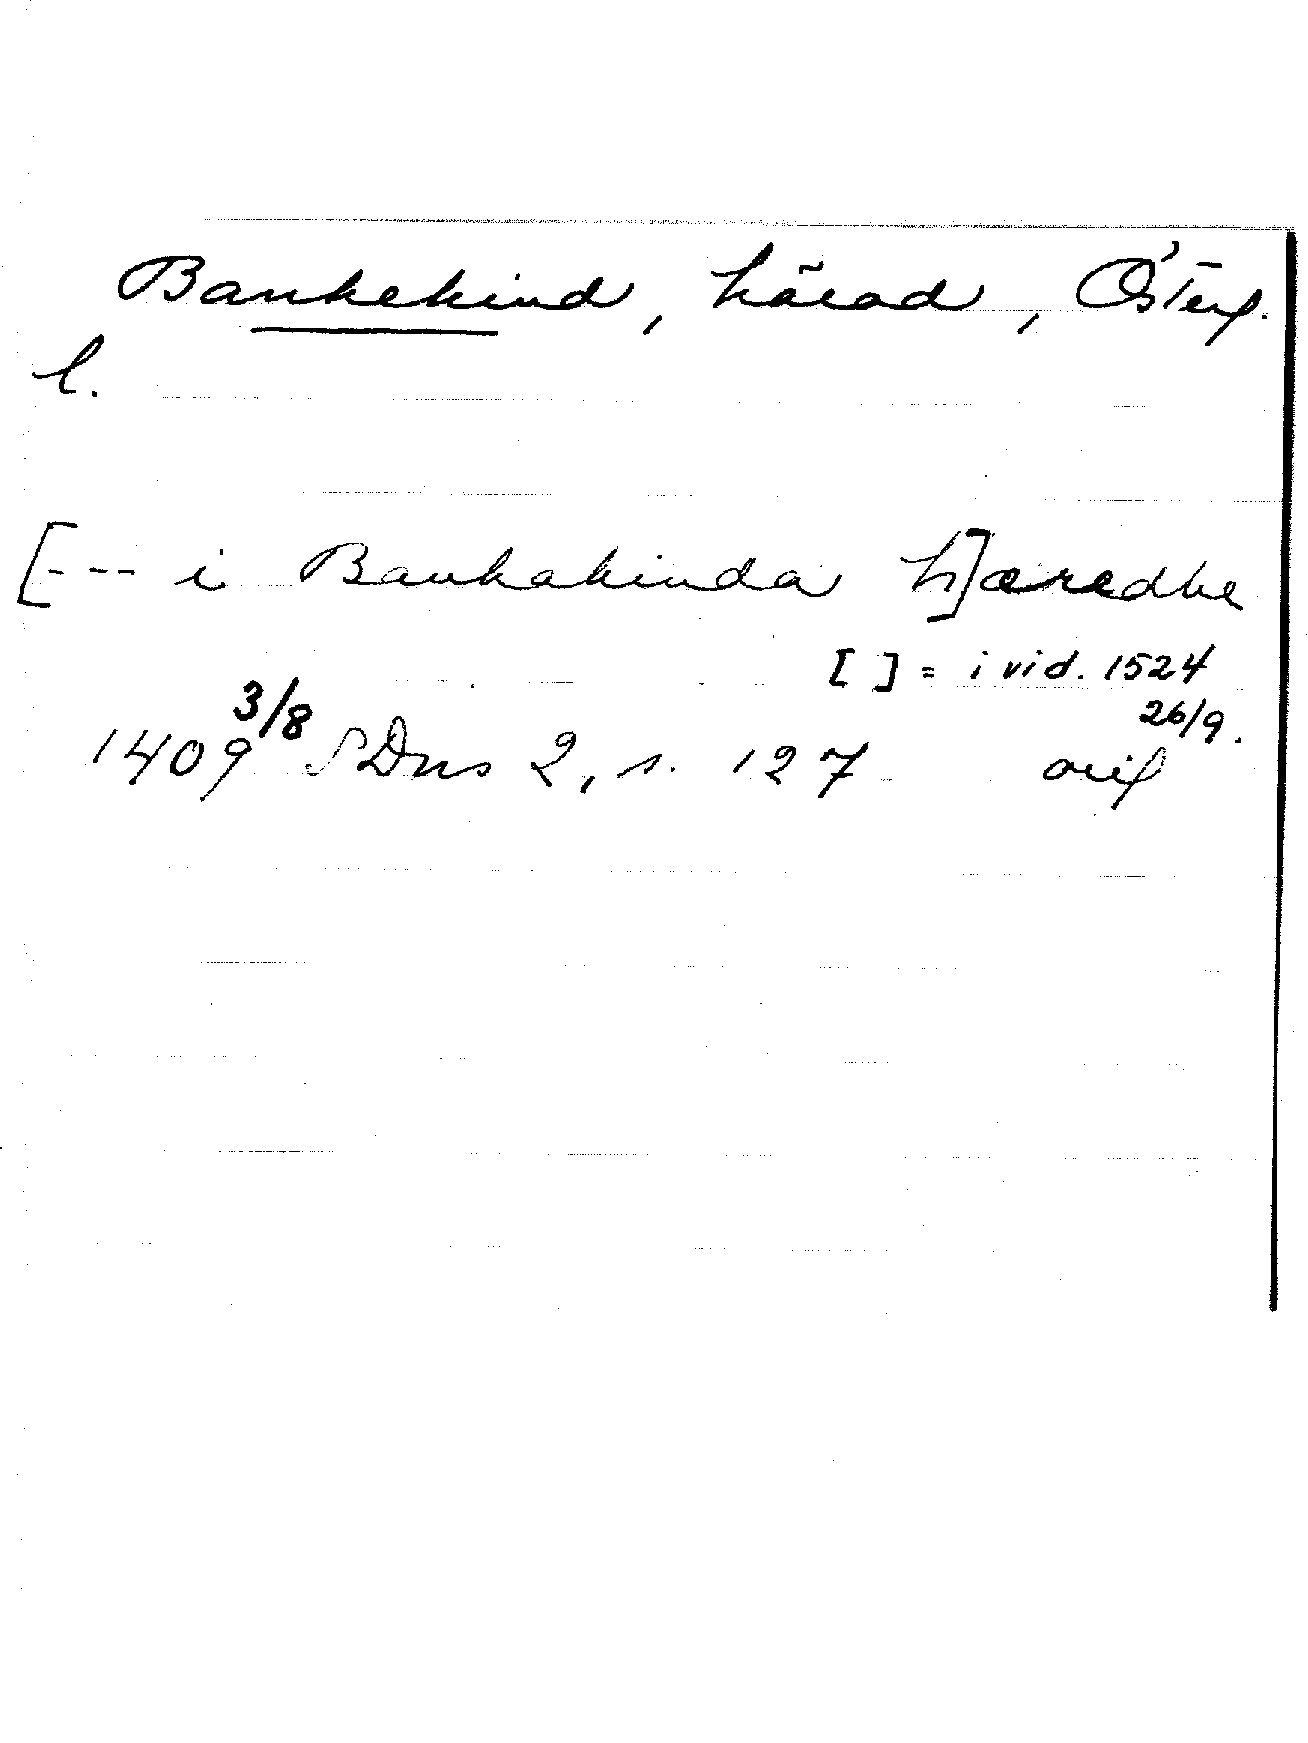 Bankekind, härad, Österg.
l.
[--- i Bankakinda h]æredhe
[ ] = i vid. 1524
26/9.
1409 3/8 SDns 2, s. 127 orig